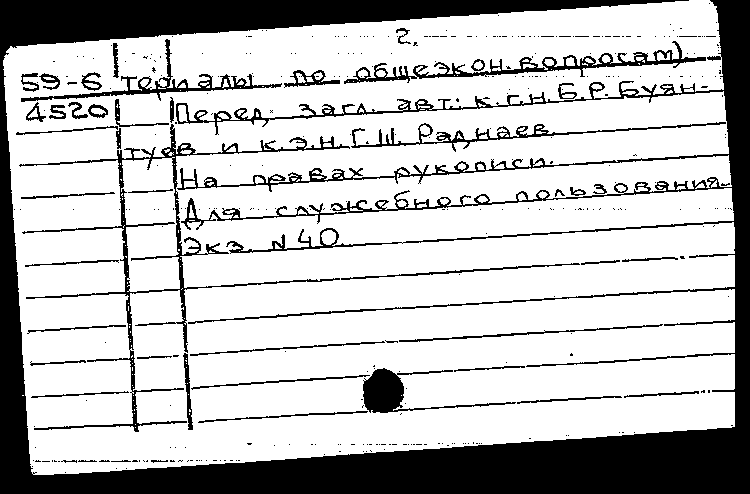 2.
59-6 териалы по общеэкон. вопросам)
4520 Перед загл. авт.: к.г.н. Б.Р. Буян-
туев и к.э.н. Г.Ш. Раднаев.
На правах рукописи.
Для служебного пользования.
Экз. N 40.